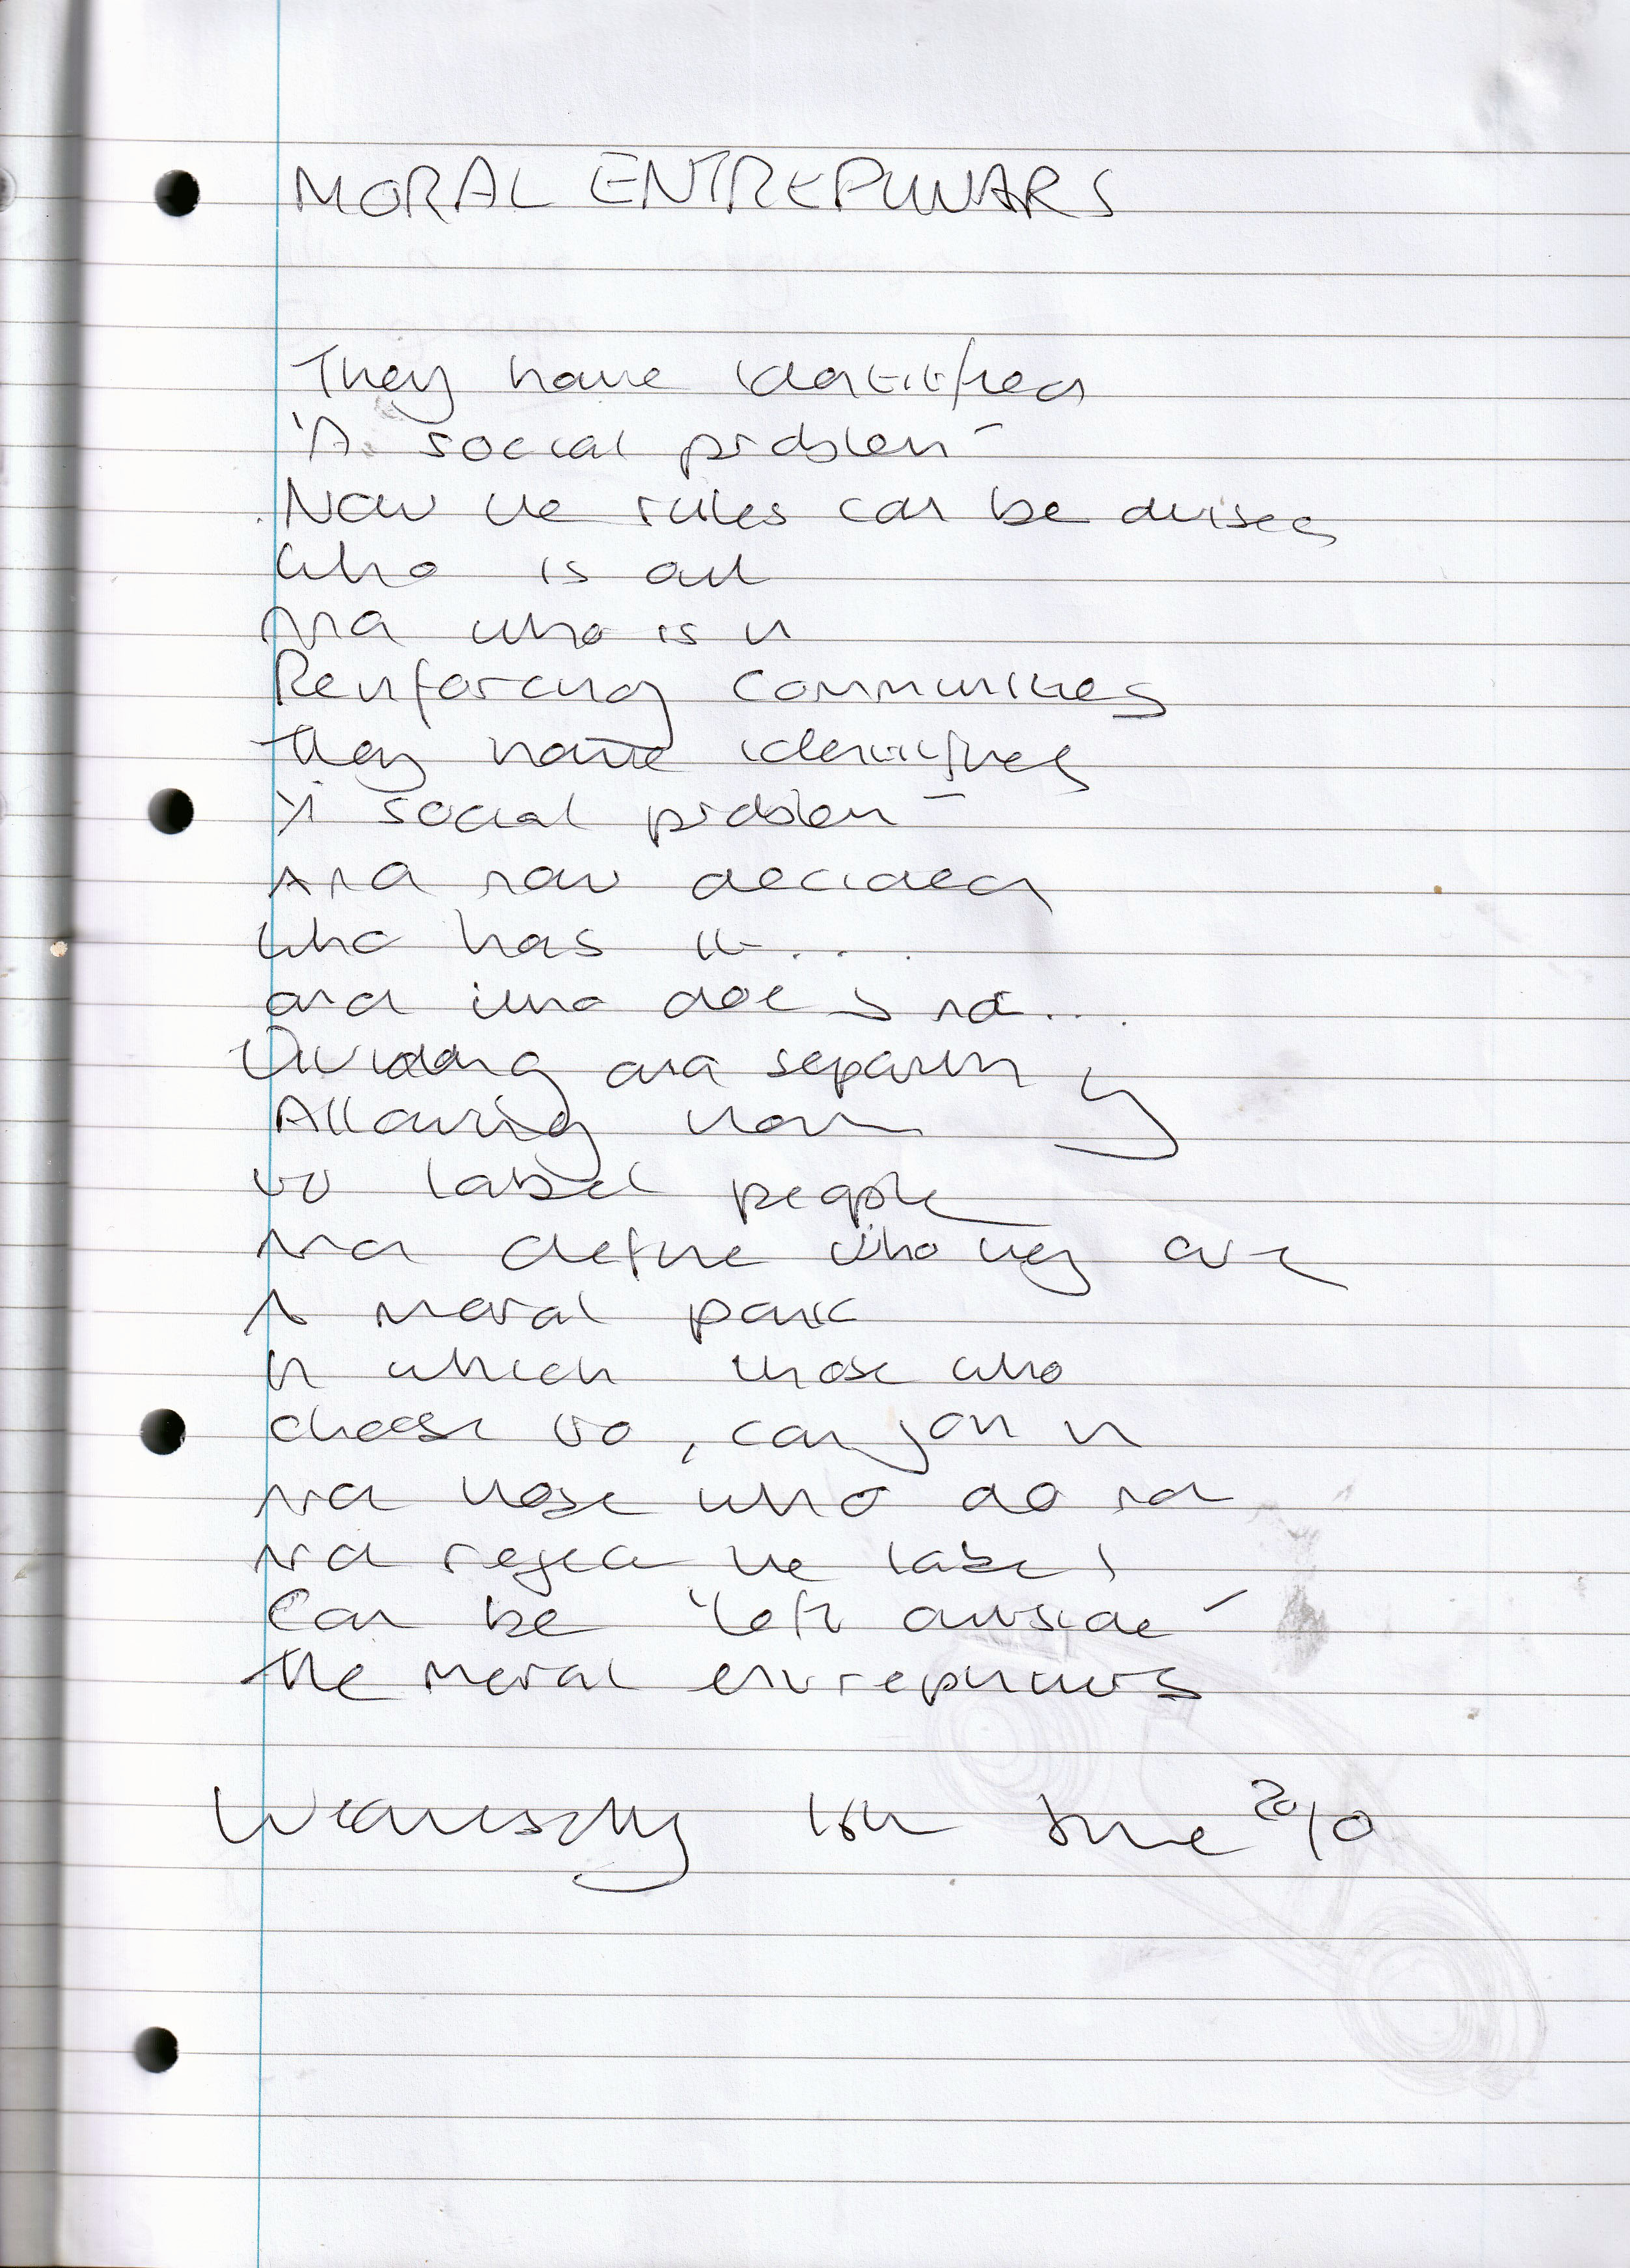 MORAL ENTREPUNARS
They have identified
'A social problem'
Now the rules can be devised
Who is out
And who is in
Reinforcing communities
They have identified
'A social problem'
And now decided
Who has it...
and who does not...
Dividing and separating
Allowing them
to label people
And define who they are
A moral panic
In which those who
choose to, can join in
And those who do not
And reject the label
Can be 'left outside'
The moral entrepunurs
Wednesday 16th June 2010